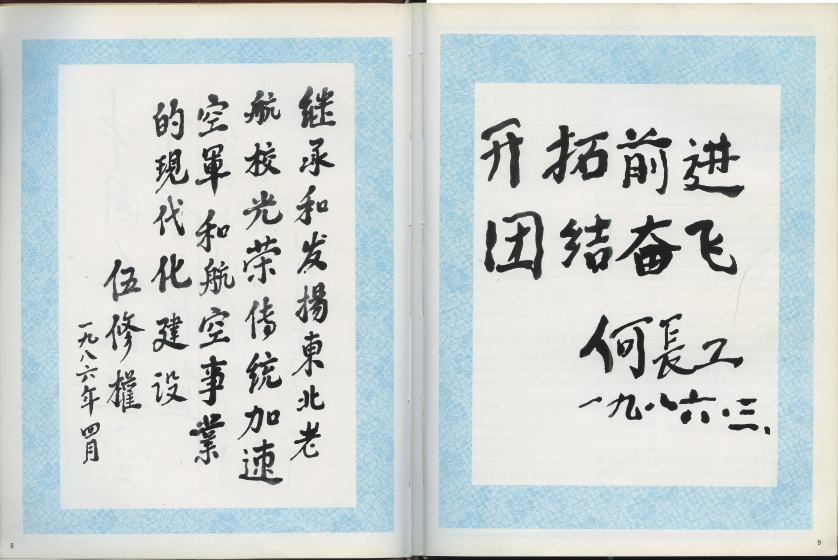 继承和发揚東北老
航校光荣傳统加速
空軍和航空事業
的現代化建设
伍修權
一九八六年四月
8
开拓前进
团结奋飞
何長工
一九八六.三.
9